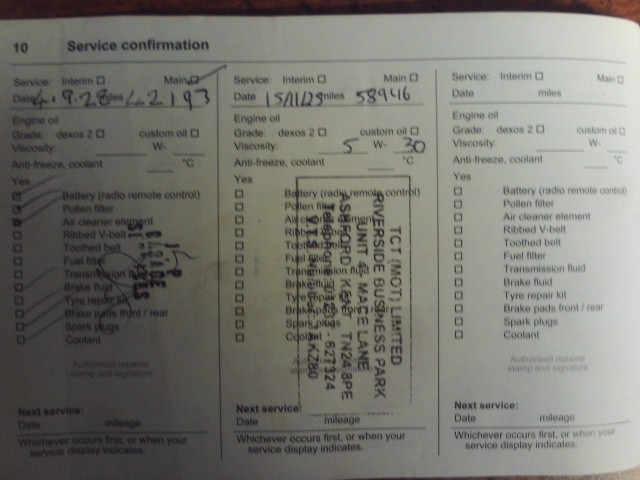 10 Service confirmation
Service: Interim Main
Date 4. 9.28 miles 42193
Engine oil
Grade: dexos 2 custom oil
Viscosity: W-
Anti-freeze, coolant °C
Yes
Battery (radio remote control)
Pollen filter
Air cleaner element
Ribbed V-belt
Toothed belt
Fuel filter
Transmission fluid
Brake fluid
Tyre repair kit
Brake pads front / rear
Spark plugs
Coolant
GARAGE
Authorised repairer
stamp and signature
Next service:
Date mileage
Whichever occurs first, or when your
service display indicates.
Service: Interim Main
Date miles 58946
Engine oil
Grade: dexos 2 custom oil
Viscosity: 5 W- 30
Anti-freeze, coolant °C
Yes
Battery (radio remote control)
Pollen filter
Air cleaner element
Ribbed V-belt
Toothed belt
Fuel filter
Transmission fluid
Brake fluid
Tyre repair kit
Brake pads front / rear
Spark plugs
Coolant
TCT (MOT) LIMITED
RIVERSIDE BUSINESS PARK
UNIT 4 MACE LANE
ASHFORD KENT TN24 8PE
627324
Next service:
Date mileage
Whichever occurs first, or when your
service display indicates.
Service: Interim Main
Date miles
Engine oil
Grade: dexos 2 custom oil
Viscosity: W-
Anti-freeze, coolant °C
Yes
Battery (radio remote control)
Pollen filter
Air cleaner element
Ribbed V-belt
Toothed belt
Fuel filter
Transmission fluid
Brake fluid
Tyre repair kit
Brake pads front / rear
Spark plugs
Coolant
Authorised repairer
stamp and signature
Next service:
Date mileage
Whichever occurs first, or when your
service display indicates.